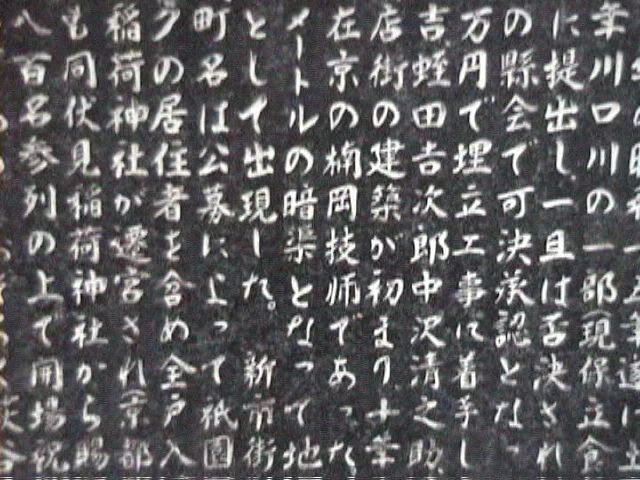 年川口川の一部(現保立食
に提出し一旦は否決され
の縣会で可決承認となっ
万円で埋立工事に着手し
吉蛭田吉次郎中沢清之助
店街の建築が初まり十年
在京の楠岡技師であった
メートルの暗渠となって地
として出現した。新市街
町名は公募によって祇園
クの居住者を含め全戸入
稲荷神社が遷宮され(京都
も同伏見稲荷神社から賜
八百名参列の上て開場祝